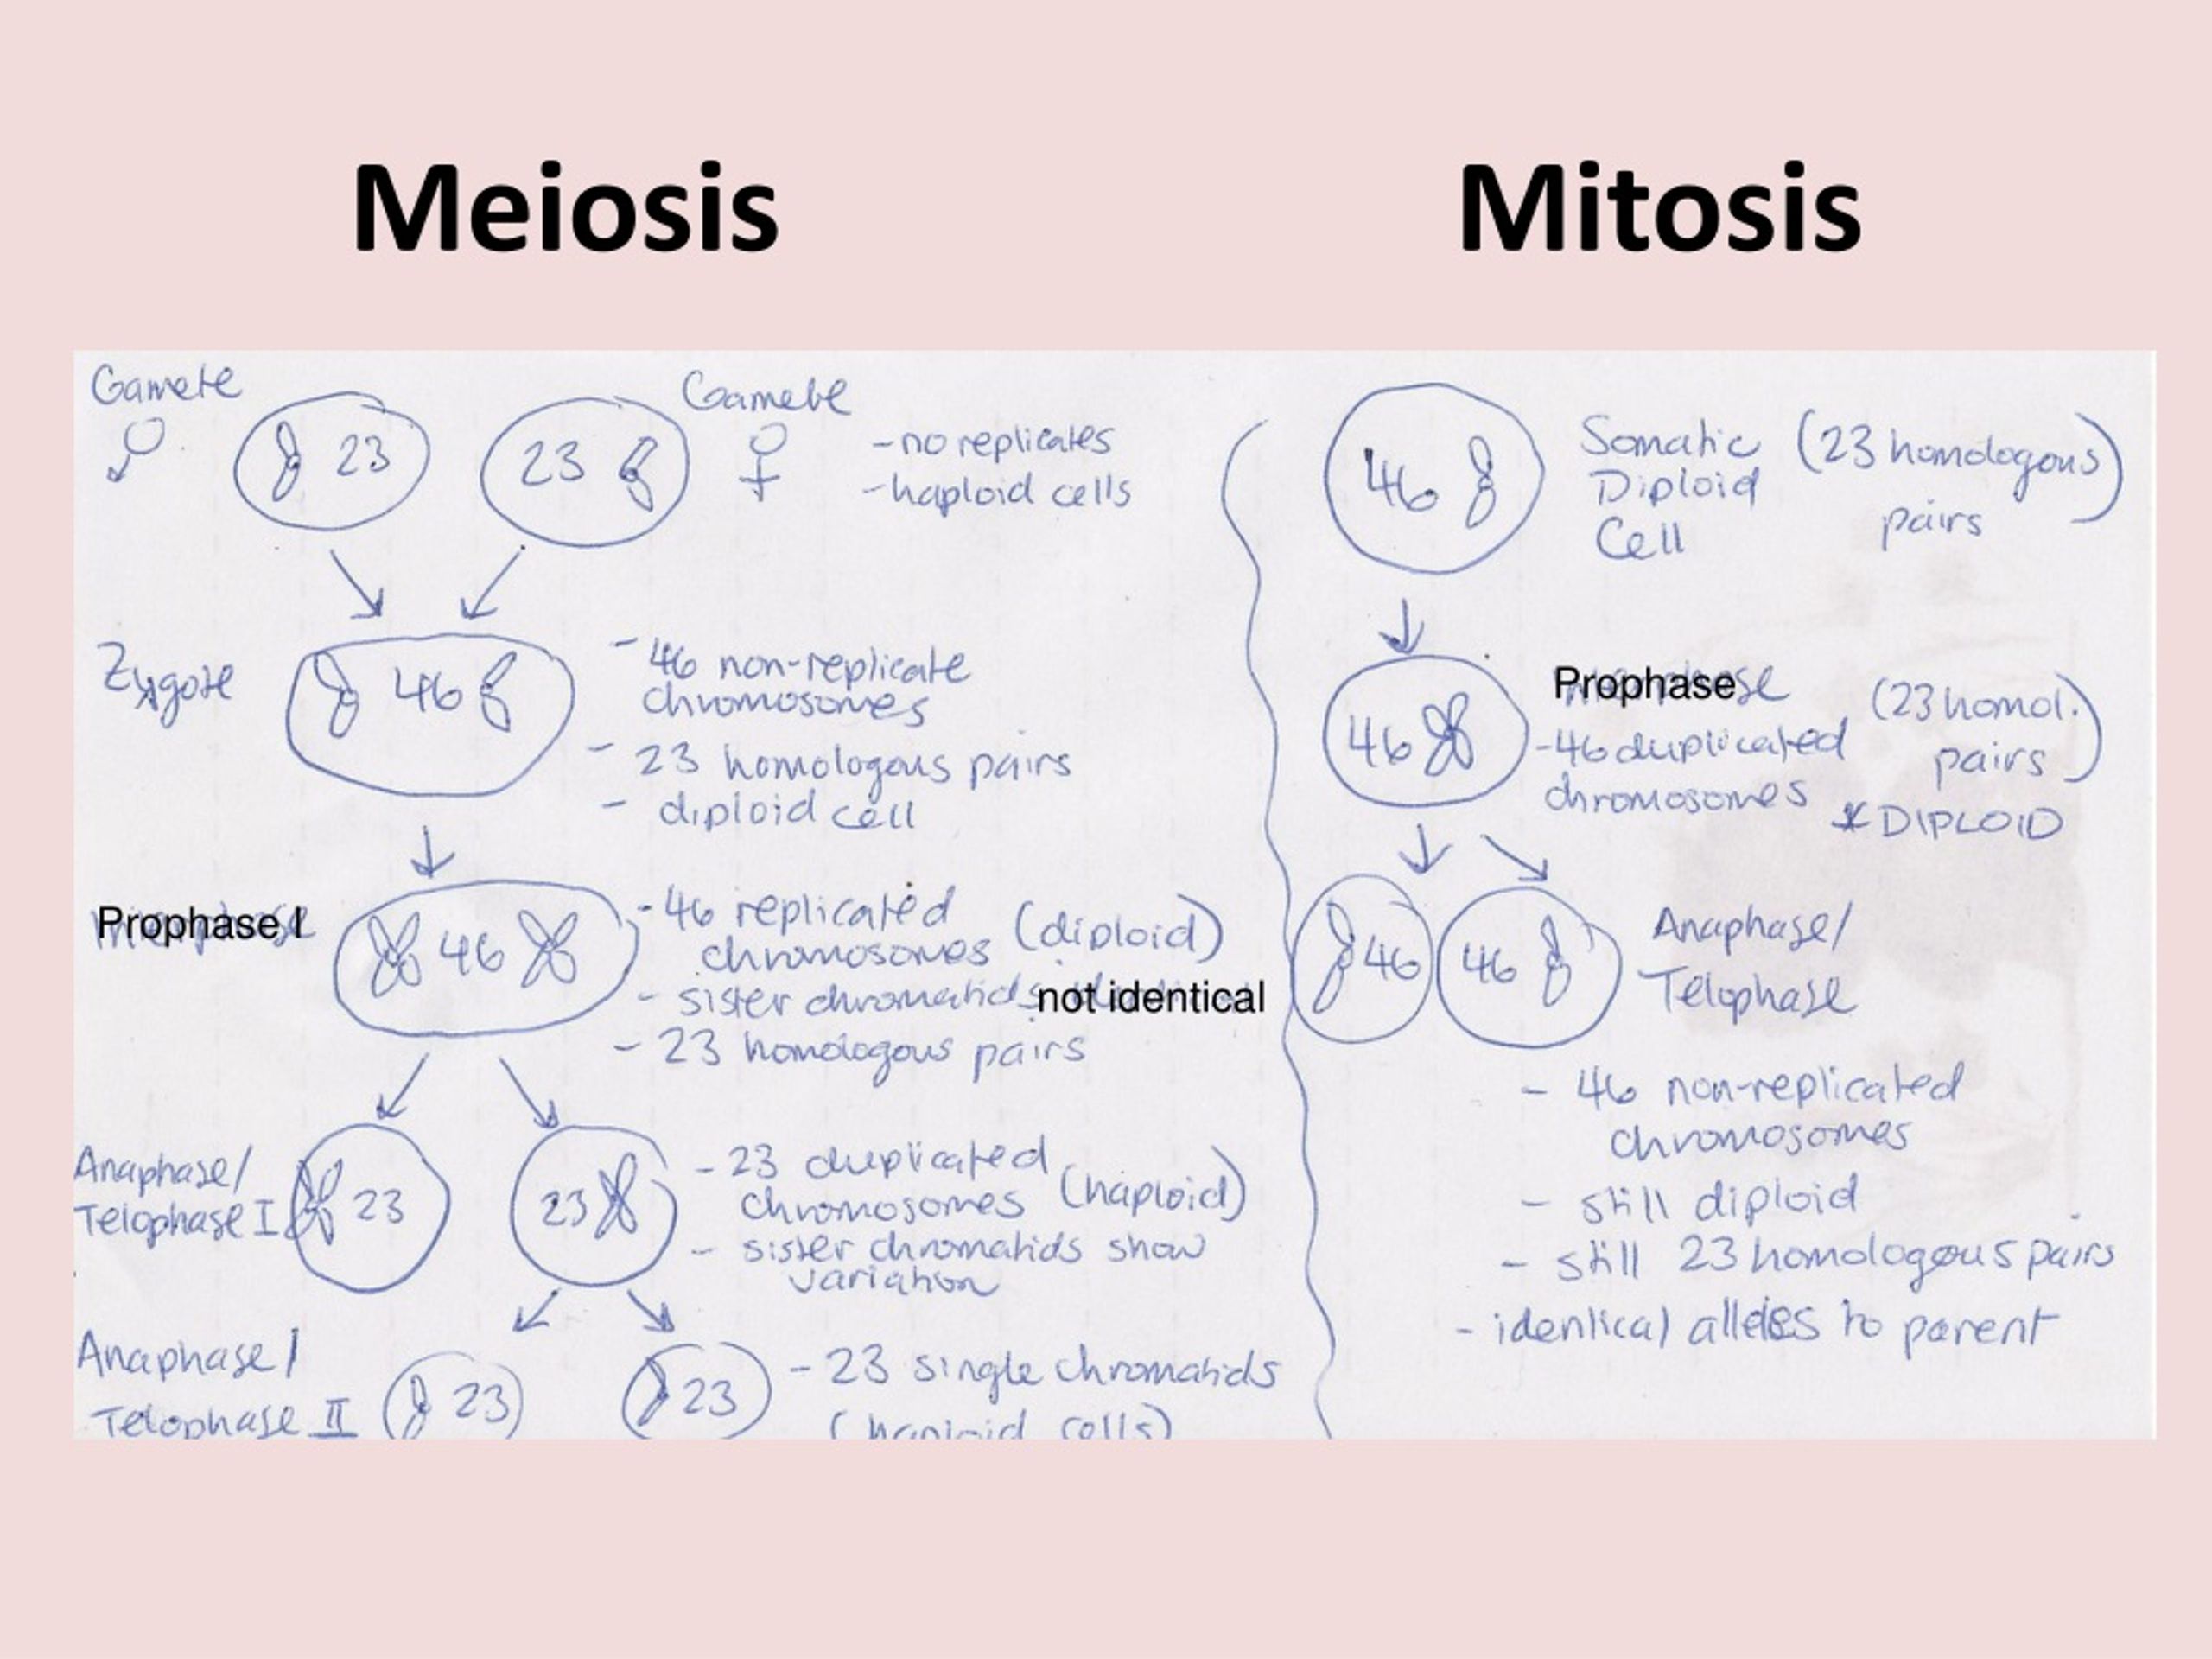 Meiosis
Mitosis
Gamete
♂
23
23
Gamete
♀
-no replicates
-haploid cells
Zygote
46
- 46 non-replicate
chromosomes
- 23 homologous pairs
- diploid cell
Prophase I
46
- 46 replicated
chromosomes (diploid)
- sister chromatids not identical
- 23 homologous pairs
Anaphase/
Telophase I
23
23
- 23 duplicated
chromosomes (haploid)
- sister chromatids show
variation
Anaphase/
Telophase II
23
23
- 23 single chromatids
(haploid cells)
46
Somatic
Diploid
Cell
(23 homologous
pairs)
46
Prophase
-46 duplicated
chromosomes
(23 homol.
pairs)
* DIPLOID
46
46
Anaphase/
Telophase
- 46 non-replicated
chromosomes
- still diploid
- still 23 homologous pairs
- identical alleles to parent